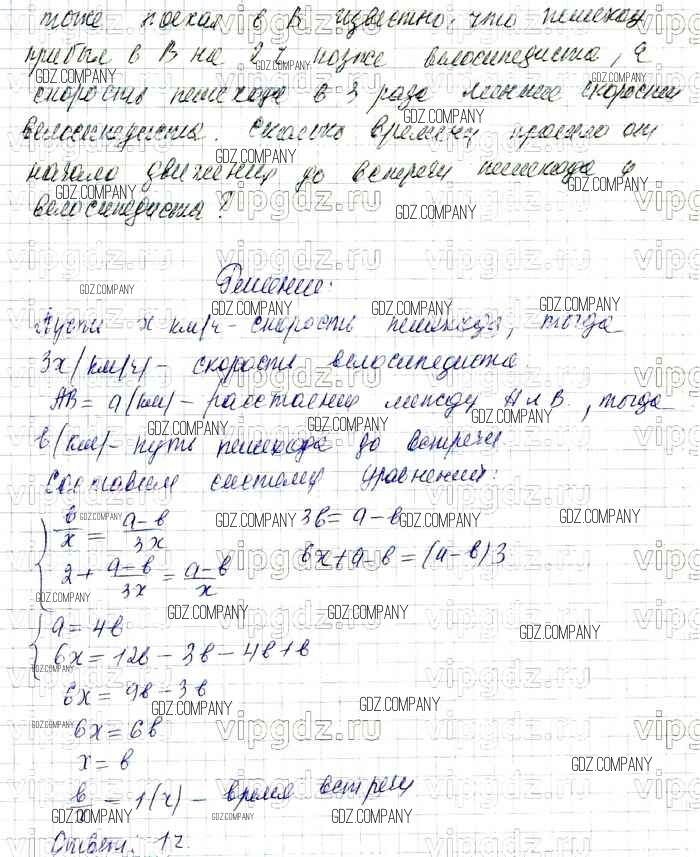 тоже поехал в В. Известно, что пешеход
прибыл в В на 2 ч позже велосипедиста, а
скорость пешехода в 3 раза меньше скорости
велосипедиста. Сколько времени прошло от
начала движения до встречи пешехода и
велосипедиста?
Решение:
Пусть x км/ч - скорость пешехода, тогда
3x (км/ч) - скорость велосипедиста
AB = a (км) - расстояние между А и В, тогда
b (км) - путь пешехода до встречи.
Составим систему уравнений:
b/x = (a-b)/3x 3b = a-b
2 + (a-b)/3x = (a-b)/x 6x + a-b = (a-b)3
a = 4b
6x = 12b - 3b - 4b + b
6x = 9b - 3b
6x = 6b
x = b
b/x = 1 (ч) - время встречи
Ответ: 1 ч.
GDZ.COMPANY
vipgdz.ru